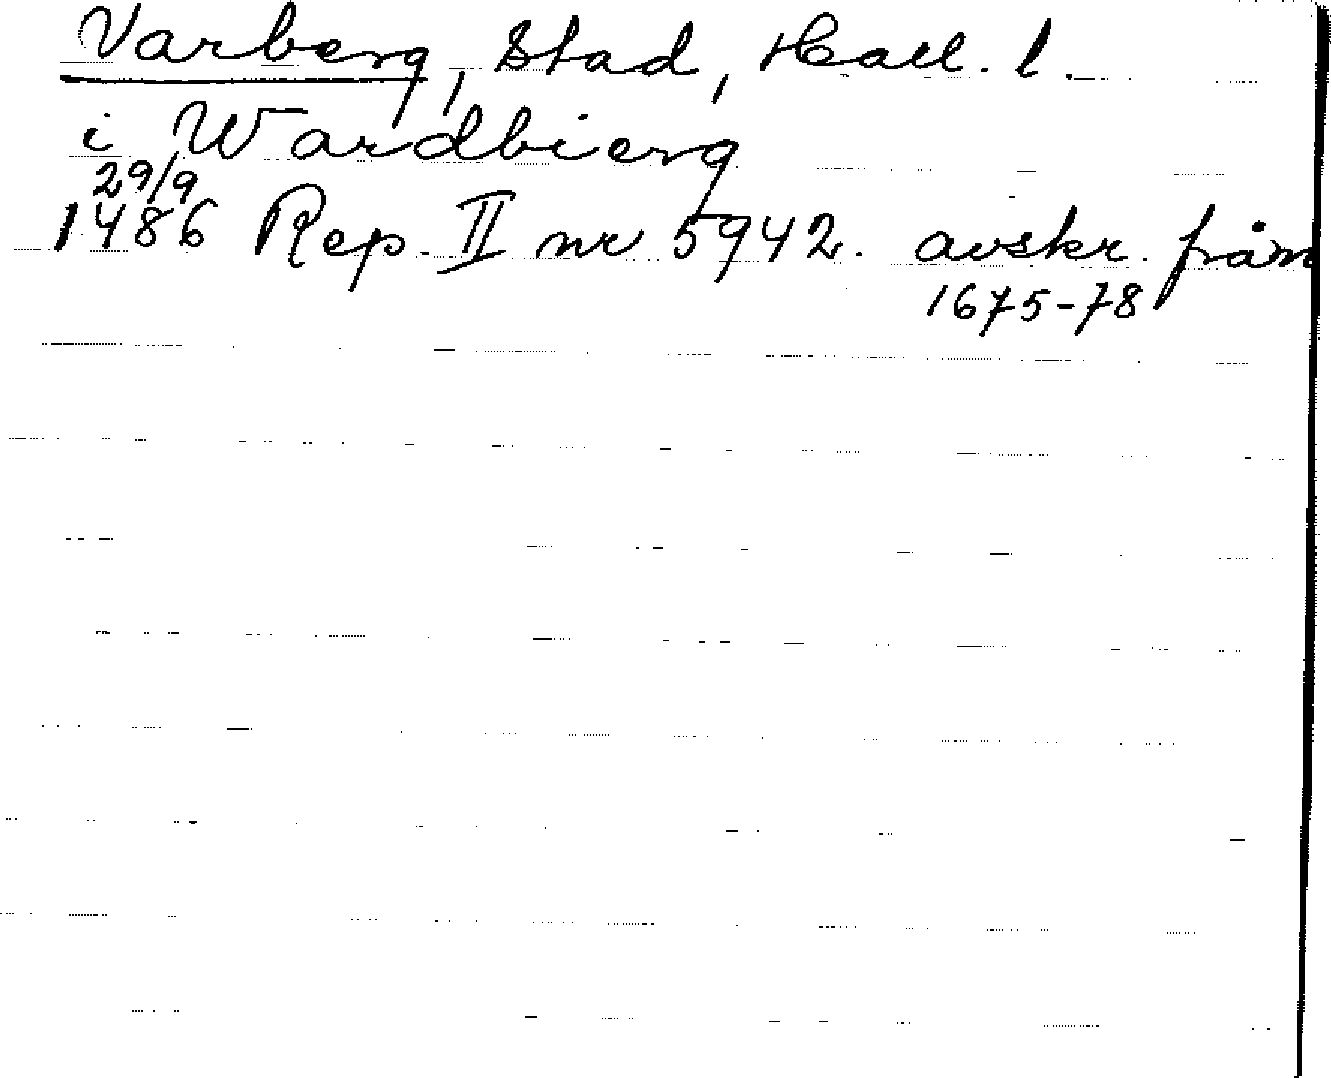 Varberg, Stad, Hall. l.
i Wardbierg
29/9
1486 Rep. II nr 5942. avskr. från
1675-78